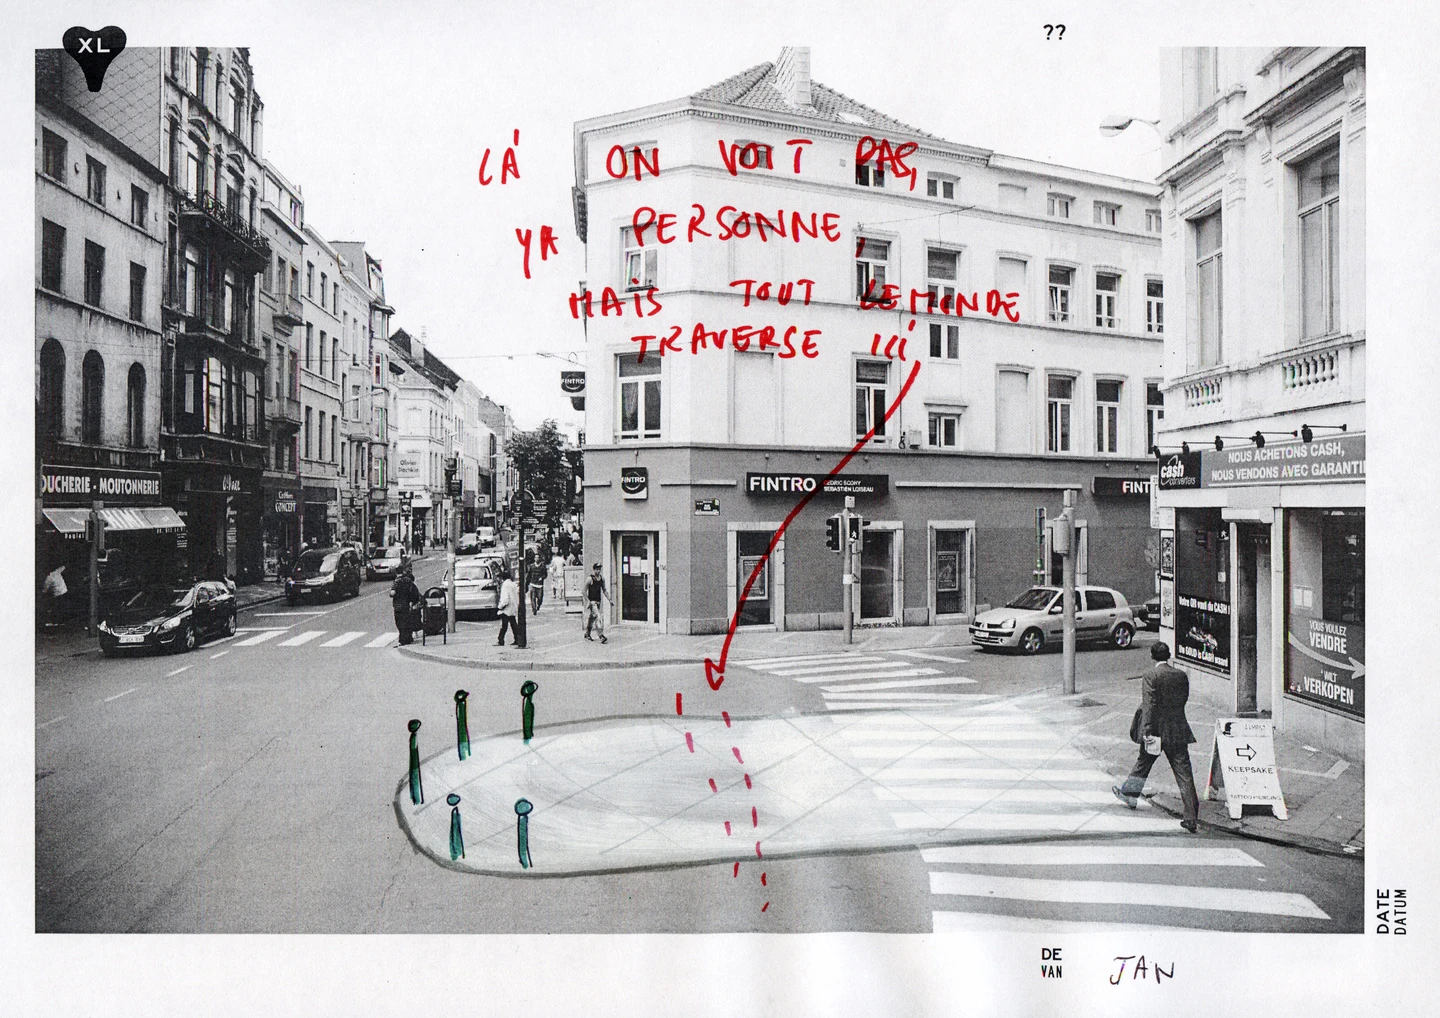 XL
??
LÀ ON VOIT PAS,
YA PERSONNE,
MAIS TOUT LE MONDE
TRAVERSE ICI,
FINTRO
OUCHERIE - MOUTONNERIE
Coiffure
CONCEPT
FINTRO
FINTRO CEDRIC SCORY
SEBASTIEN LOISEAU
FINT
cash
converters
NOUS ACHETONS CASH,
NOUS VENDONS AVEC GARANTI
VOUS VOULEZ
VENDRE
WILT
VERKOPEN
KEEPSAKE
DATE
DATUM
DE
VAN
JAN